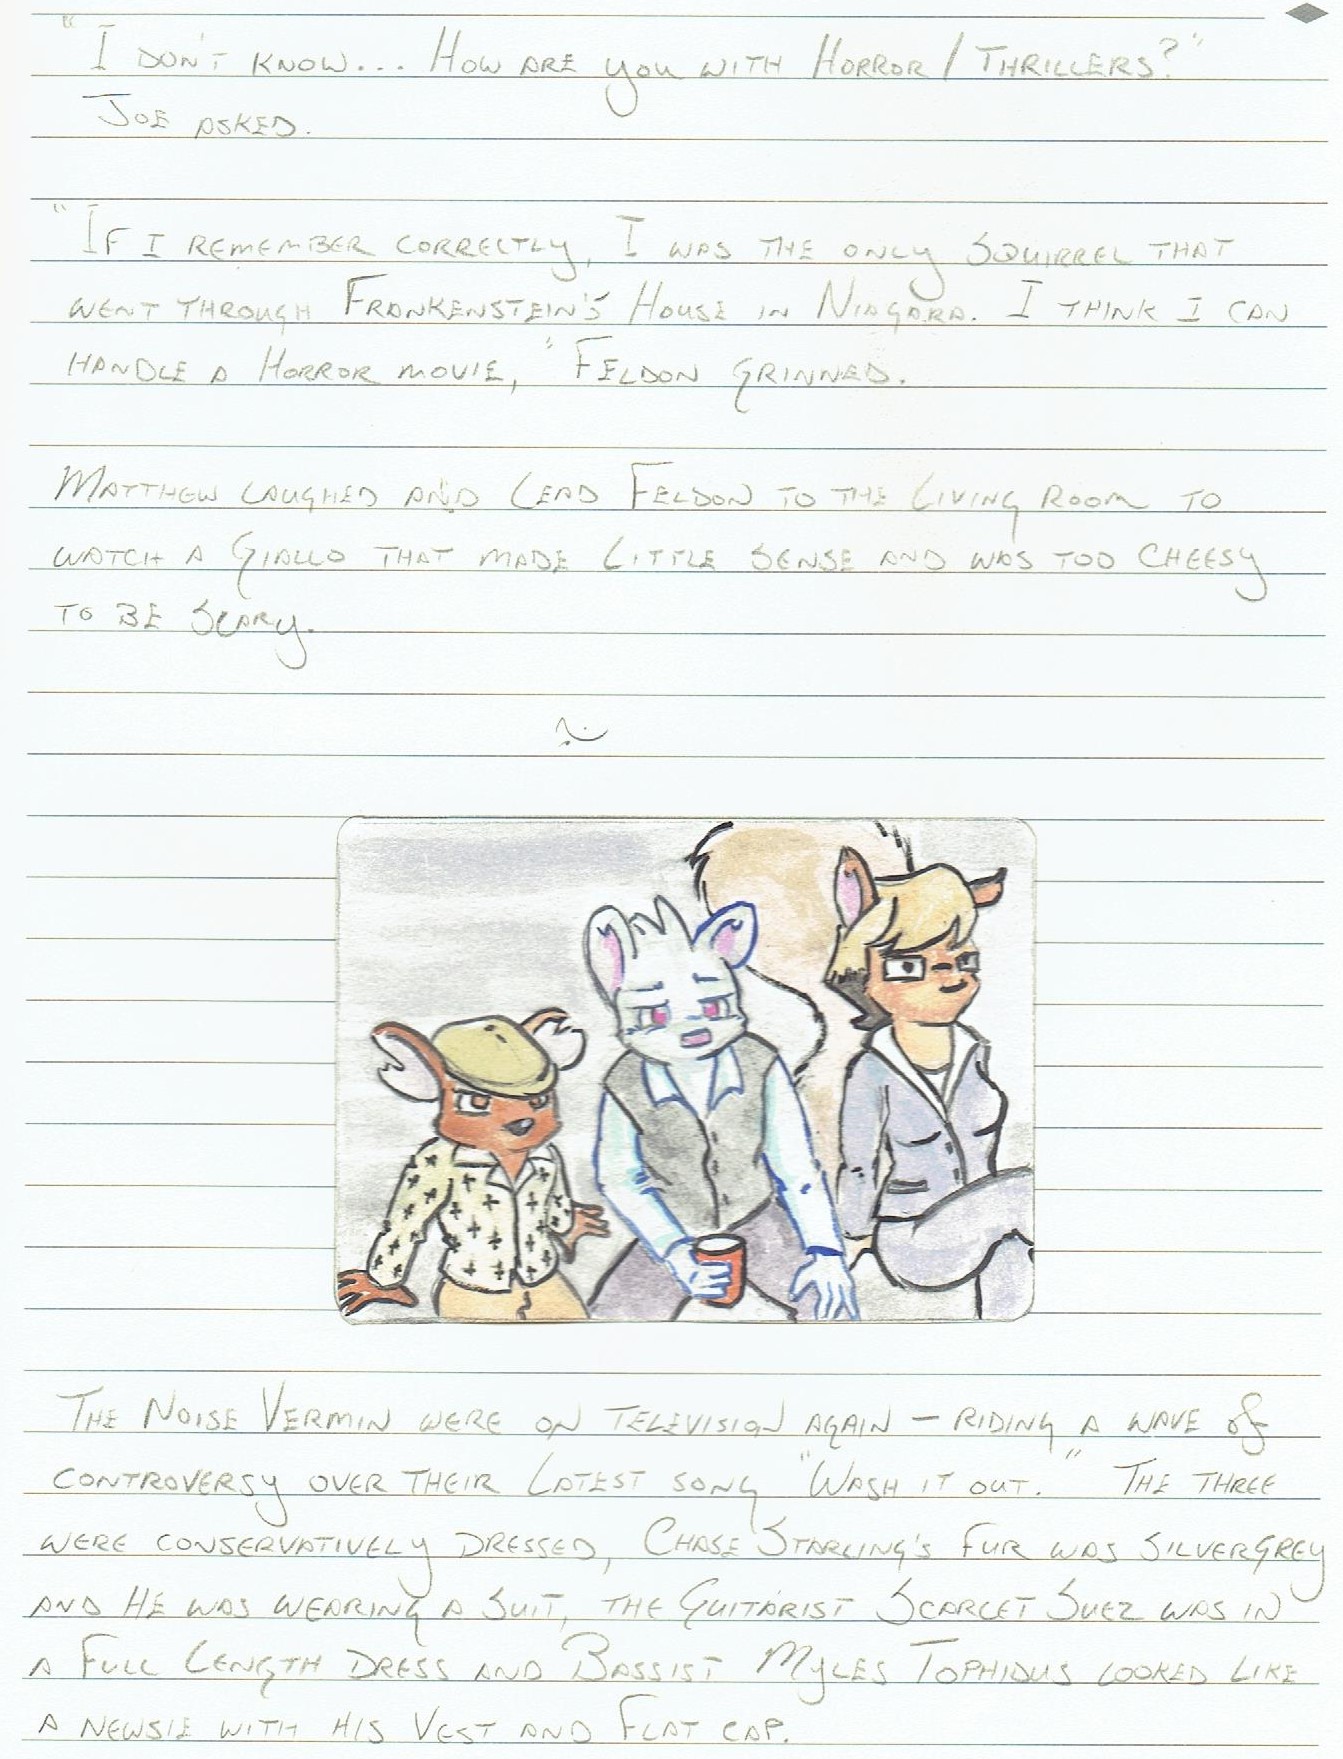 "I don't know... How are you with Horror/Thrillers?"
Joe asked.
"If I remember correctly, I was the only squirrel that
went through Frankenstein's House in Niagara. I think I can
handle a Horror movie," Feldon grinned.
Matthew laughed and lead Feldon to the living room to
watch a Giallo that made little sense and was too cheesy
to be scary.
The Noise Vermin were on television again – riding a wave of
controversy over their latest song "Wash it out." The three
were conservatively dressed, Chase Starling's fur was silvergrey
and he was wearing a suit, the guitarist Scarlet Suez was in
a full length dress and Bassist Myles Tophidus looked like
a newsie with his vest and flat cap.